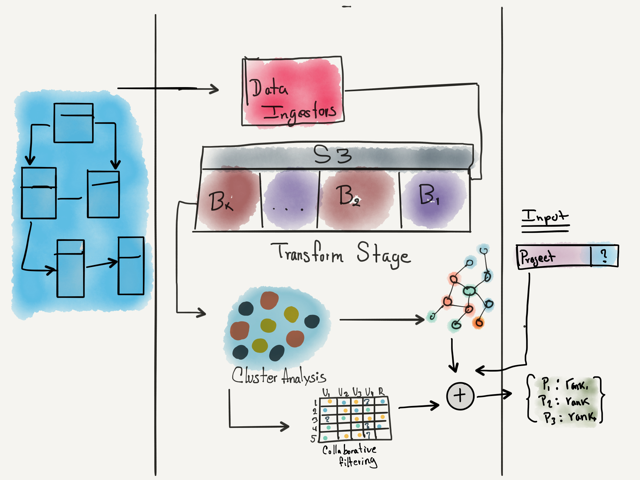 Data
Ingestors
S3
Bₖ
...
B₂
B₁
Transform Stage
Input
Project ?
Cluster Analysis
U₁ U₂ U₃ U₄ R
1
2
3
4
5
Collaborative
filtering
+
P₁ : rank,
P₂ : rank
P₃ : rank,